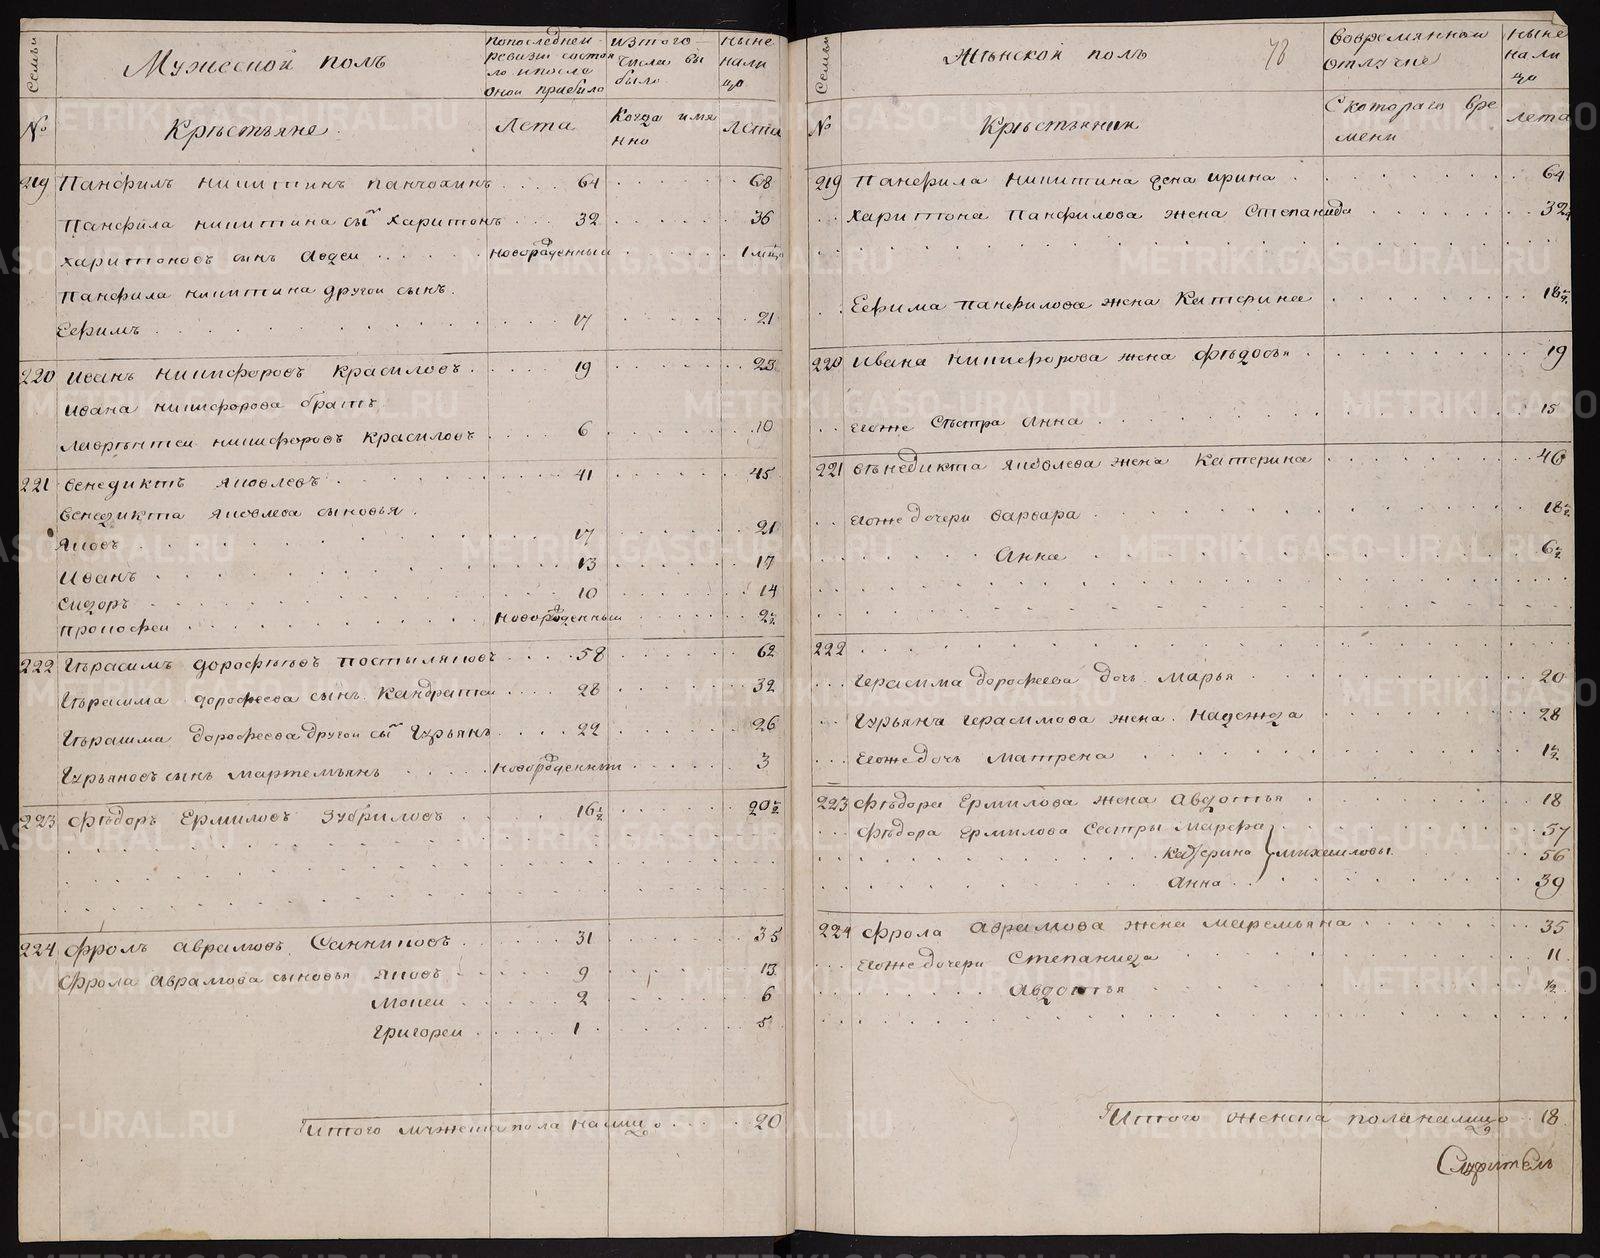 Семьи
Мужеской полъ
попоследнеи
ревизи состоя
ло ипосле
онои прибыло
изтого
числа вы
было
ныне
нали
цо
№
Крѣстьяне
Лета
Когда имя
нно
лета
219 Панфилъ никитинъ панчохинъ 64 68
Панфила никитина сы̃ Харитонъ 32 36
харитоновъ сынъ Авдеи новорожденныи 1 мцъ
Панфила никитина другои сынъ
Ефимъ 17 21
220 Иванъ никифоровъ красиловъ 19 23
ивана никифорова братъ
лаврѣнтеи никифоровъ красиловъ 6 10
221 венедиктъ яковлевъ 41 45
венедикта яковлева сыновья
яковъ 17 21
Иванъ 13 17
сидоръ 10 14
прокофеи новорожденныи 2½
222 Гѣрасимъ дорофѣевъ постыляковъ 58 62
Гѣрасима дорофеева сынъ Кандратеи 28 32
Гѣрасима дорофеева другои сы̃ Гурьянъ 22 26
Гурьяновъ сынъ мартемьянъ новорожденныи 3
223 Фѣдоръ Ермиловъ зубриловъ 16½ 20½
224 Фролъ аврамовъ Санниковъ 31 35
Фрола аврамова сыновья яковъ 9 13
Мокеи 2 6
Григореи 1 5
Итого мужеска пола налицо 20
Семьи
Жѣнской полъ
78
вовремяннои
отлучке
ныне
нали
цо
№
Крѣстьянки
Скотораго вре
мени
лета
219 панфила никитина жена ирина 64
харитона Панфилова жена Степанида 32½
Ефима панфилова жена Катерина 18½
220 ивана никифорова жена фѣдосья 19
егоже Сѣстра Анна 15
221 вѣнедикта яковлева жена Катерина 46
егоже дочери варвара 18½
Анна 6½
222
герасима дорофеева дочь марья 20
Гурьяна герасимова жена Надежда 28
егоже дочь матрена 1½
223 Фѣдора Ермилова жена Авдотья 18
Фѣдора Ермилова Сестры марфа 57
катерина михаиловы 56
Анна 39
224 Фрола аврамова жена маремьяна 35
егоже дочери Степанида 11
Авдотья ½
Итого женска пола налицо 18
METRIKI.GASO-URAL.RU